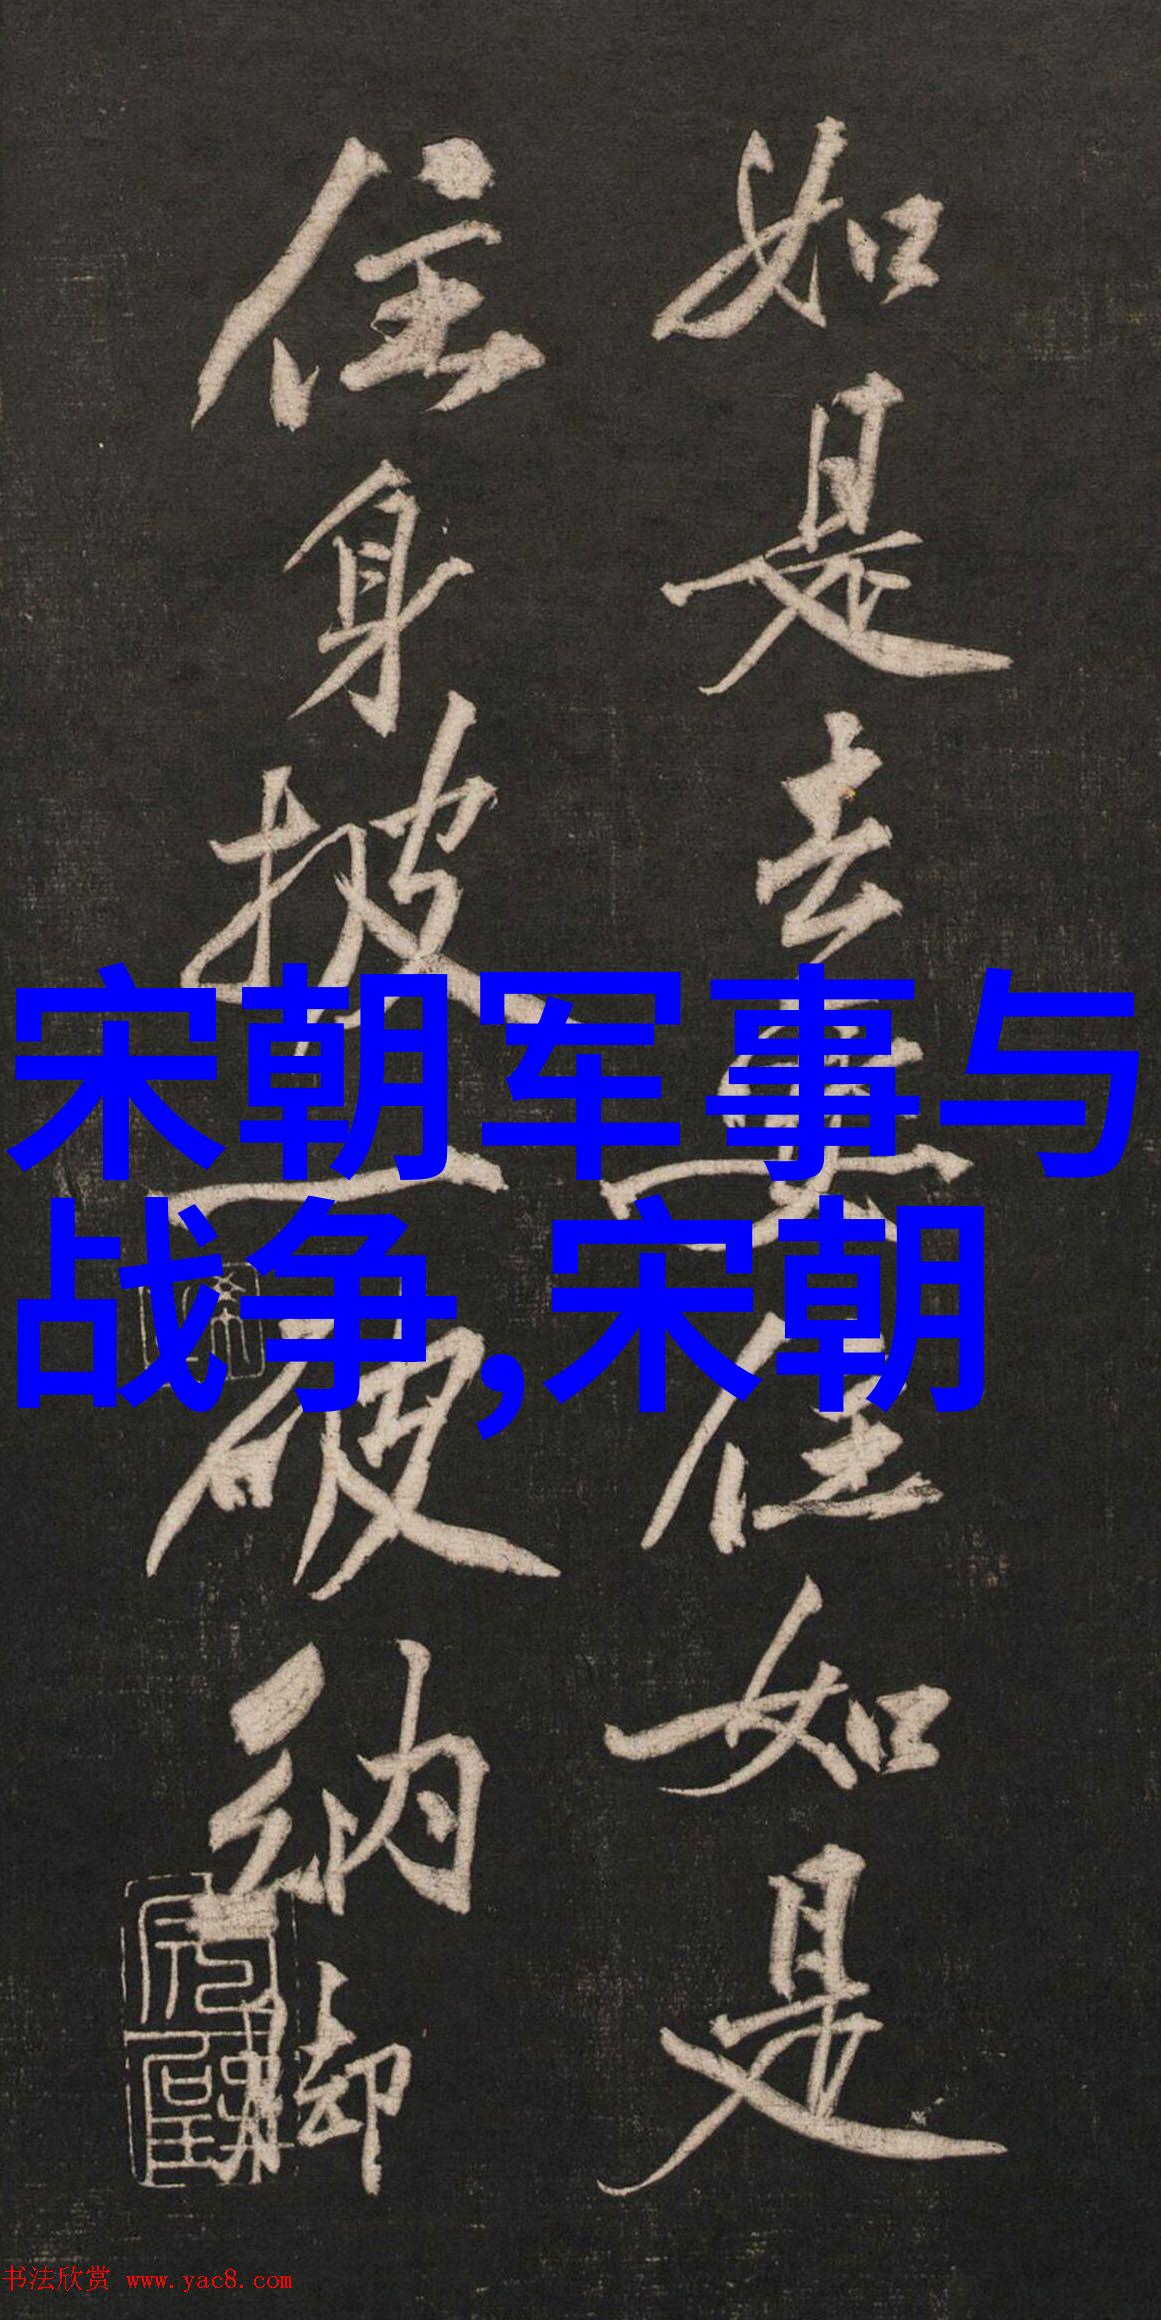 如是去要住如是
住身披一破納脚
宋朝军事与
战争,宋朝
书法欣赏 www.yac8.com